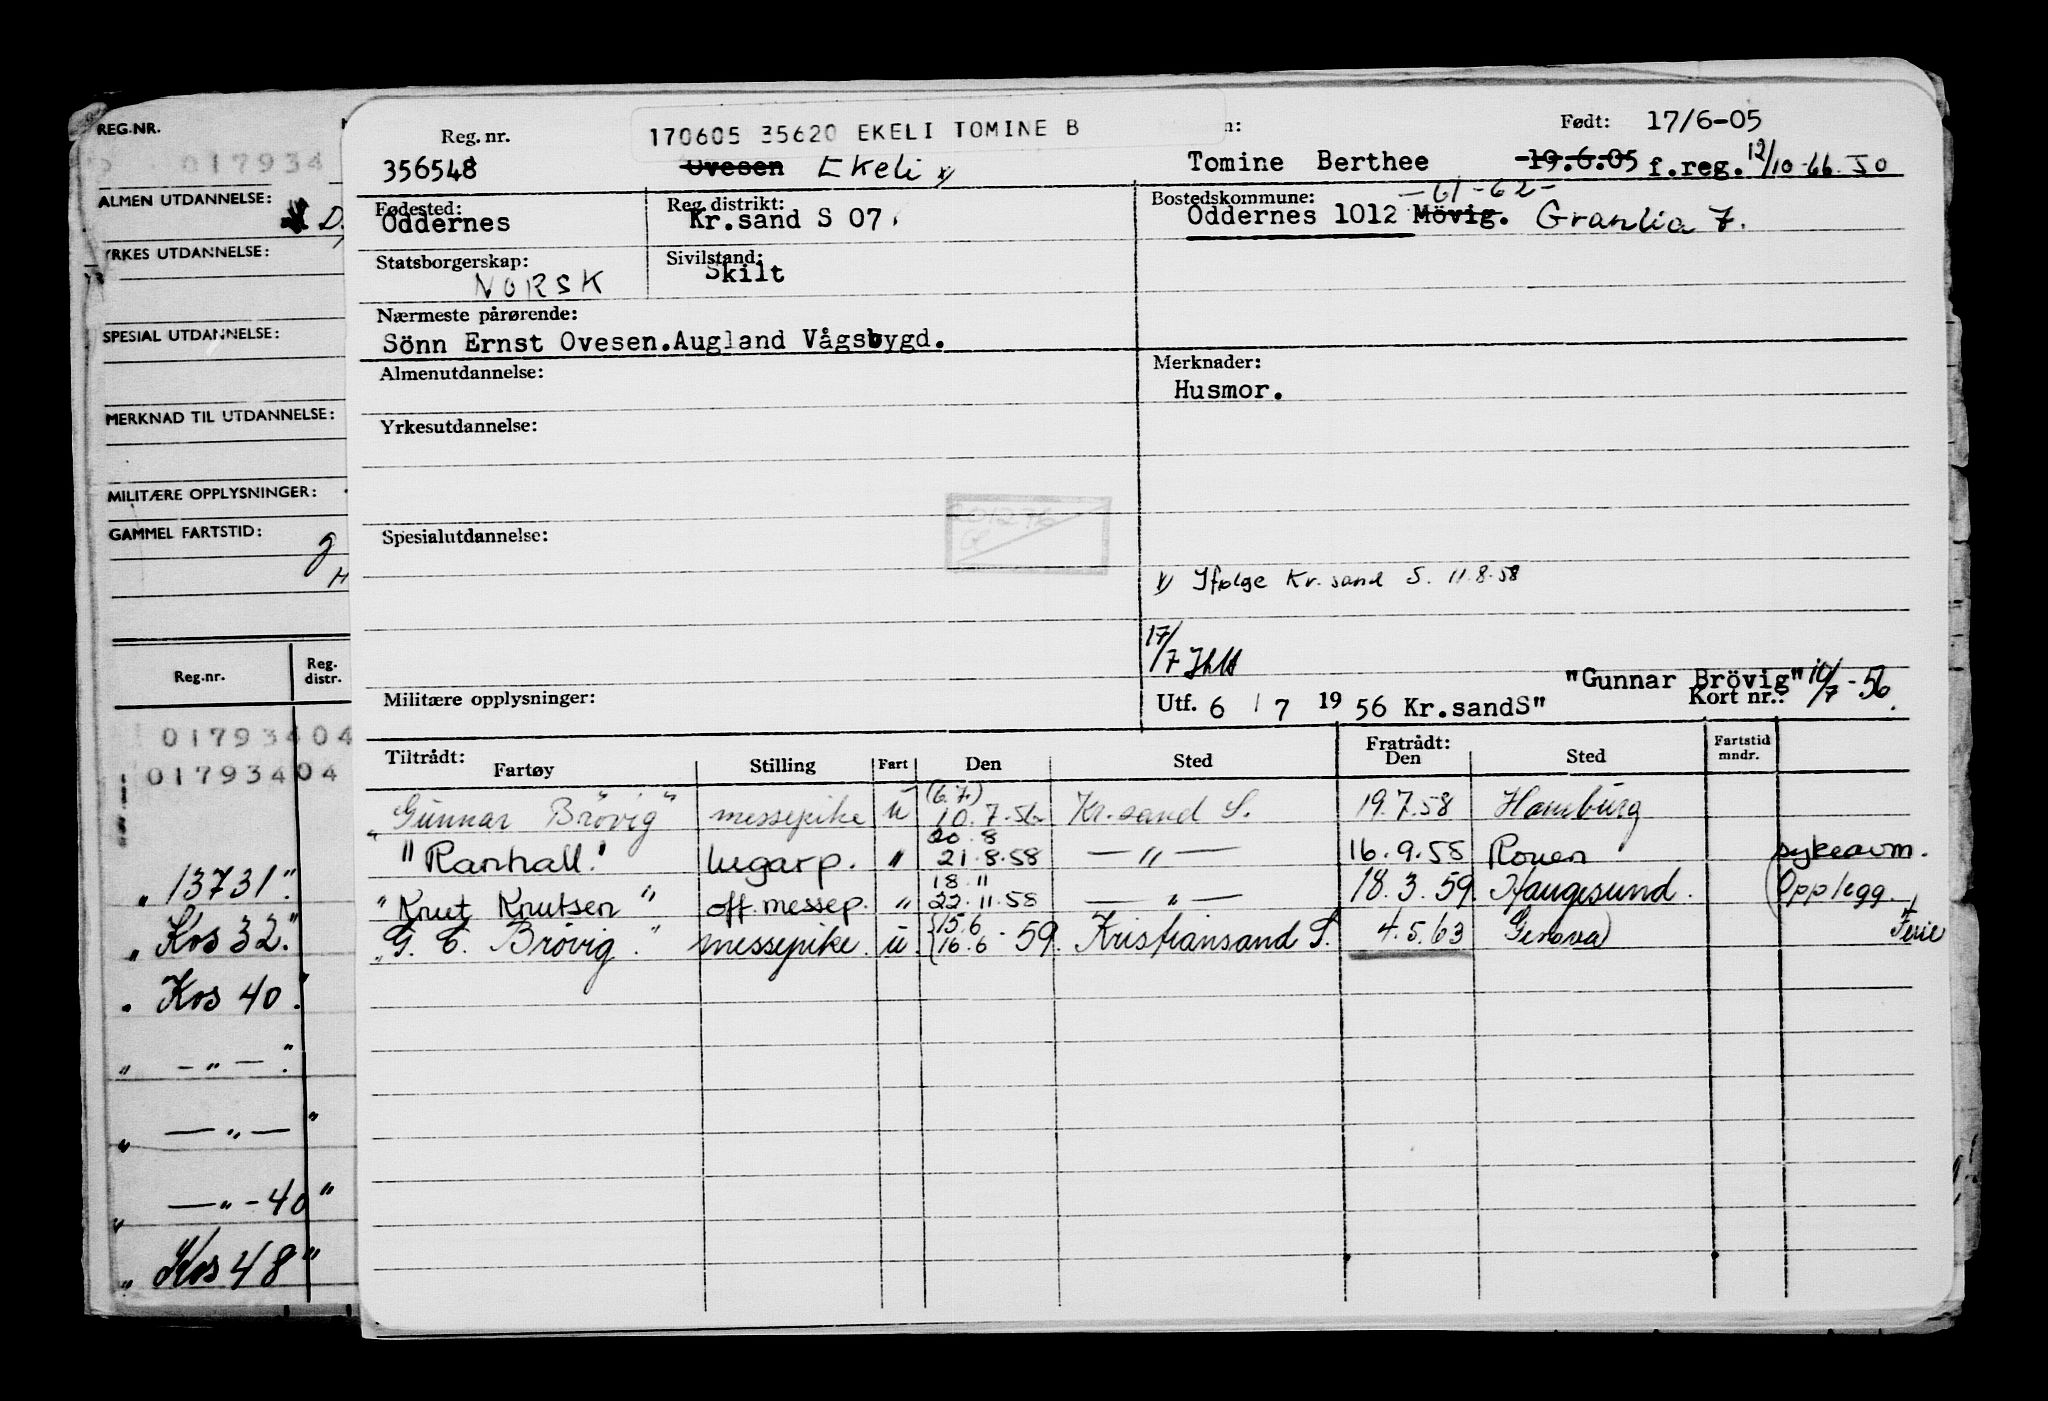 REG.NR.
017934
ALMEN UTDANNELSE:
D.
YRKES UTDANNELSE:
SPESIAL UTDANNELSE:
MERKNAD TIL UTDANNELSE:
MILITÆRE OPPLYSNINGER:
GAMMEL FARTSTID:
g
H
Reg.nr. Reg. distr.
01793404
01793404
" 13731".
" Kos 32."
" Kos 40."
" - " - ".
" — " — "
" — " - 40"
" Kos 48"
Reg. nr. 170605 35620 EKELI TOMINE B n: Født: 17/6-05
356548 Ovesen Ekeli x) Tomine Berthee 19.6.05 f.reg. 12/10-66 JO
Fødested: Reg. distrikt: Bostedskommune: -61-62-
Oddernes Kr.sand S 07 Oddernes 1012 Mövig. Granlia 7.
Statsborgerskap: Sivilstand:
NORSK Skilt
Nærmeste pårørende:
Sönn Ernst Ovesen.Augland Vågsbygd.
Almenutdannelse: Merknader:
Husmor.
Yrkesutdannelse:
201276
Spesialutdannelse:
x) Ifølge Kr.sand S. 11.8.58
17/7
"Gunnar Brövig" 10/7-56.
Militære opplysninger: Utf. 6 / 7 19 56 Kr.sandS" Kort nr.:
Tiltrådt: Fratrådt:
Fartøy Stilling Fart Den Sted Den Sted Fartstid mndr.
"Gunnar Brövig" messepike u (6.7) 10.7.56 Kr.sand S. 19.7.58 Hamburg
"Ranhall" lugarp. " 20.8 21.8.58 — " — 16.9.58 Rouen sykeavm.
"Knut Knutsen" off.messep. " 18.11 22.11.58 — " — 18.3.59. Haugesund. (Opplegg.
"G. C. Brövig." messepike. u. {15.6 16.6 - 59. Kristiansand S. 4.5.63 Genova) Ferie